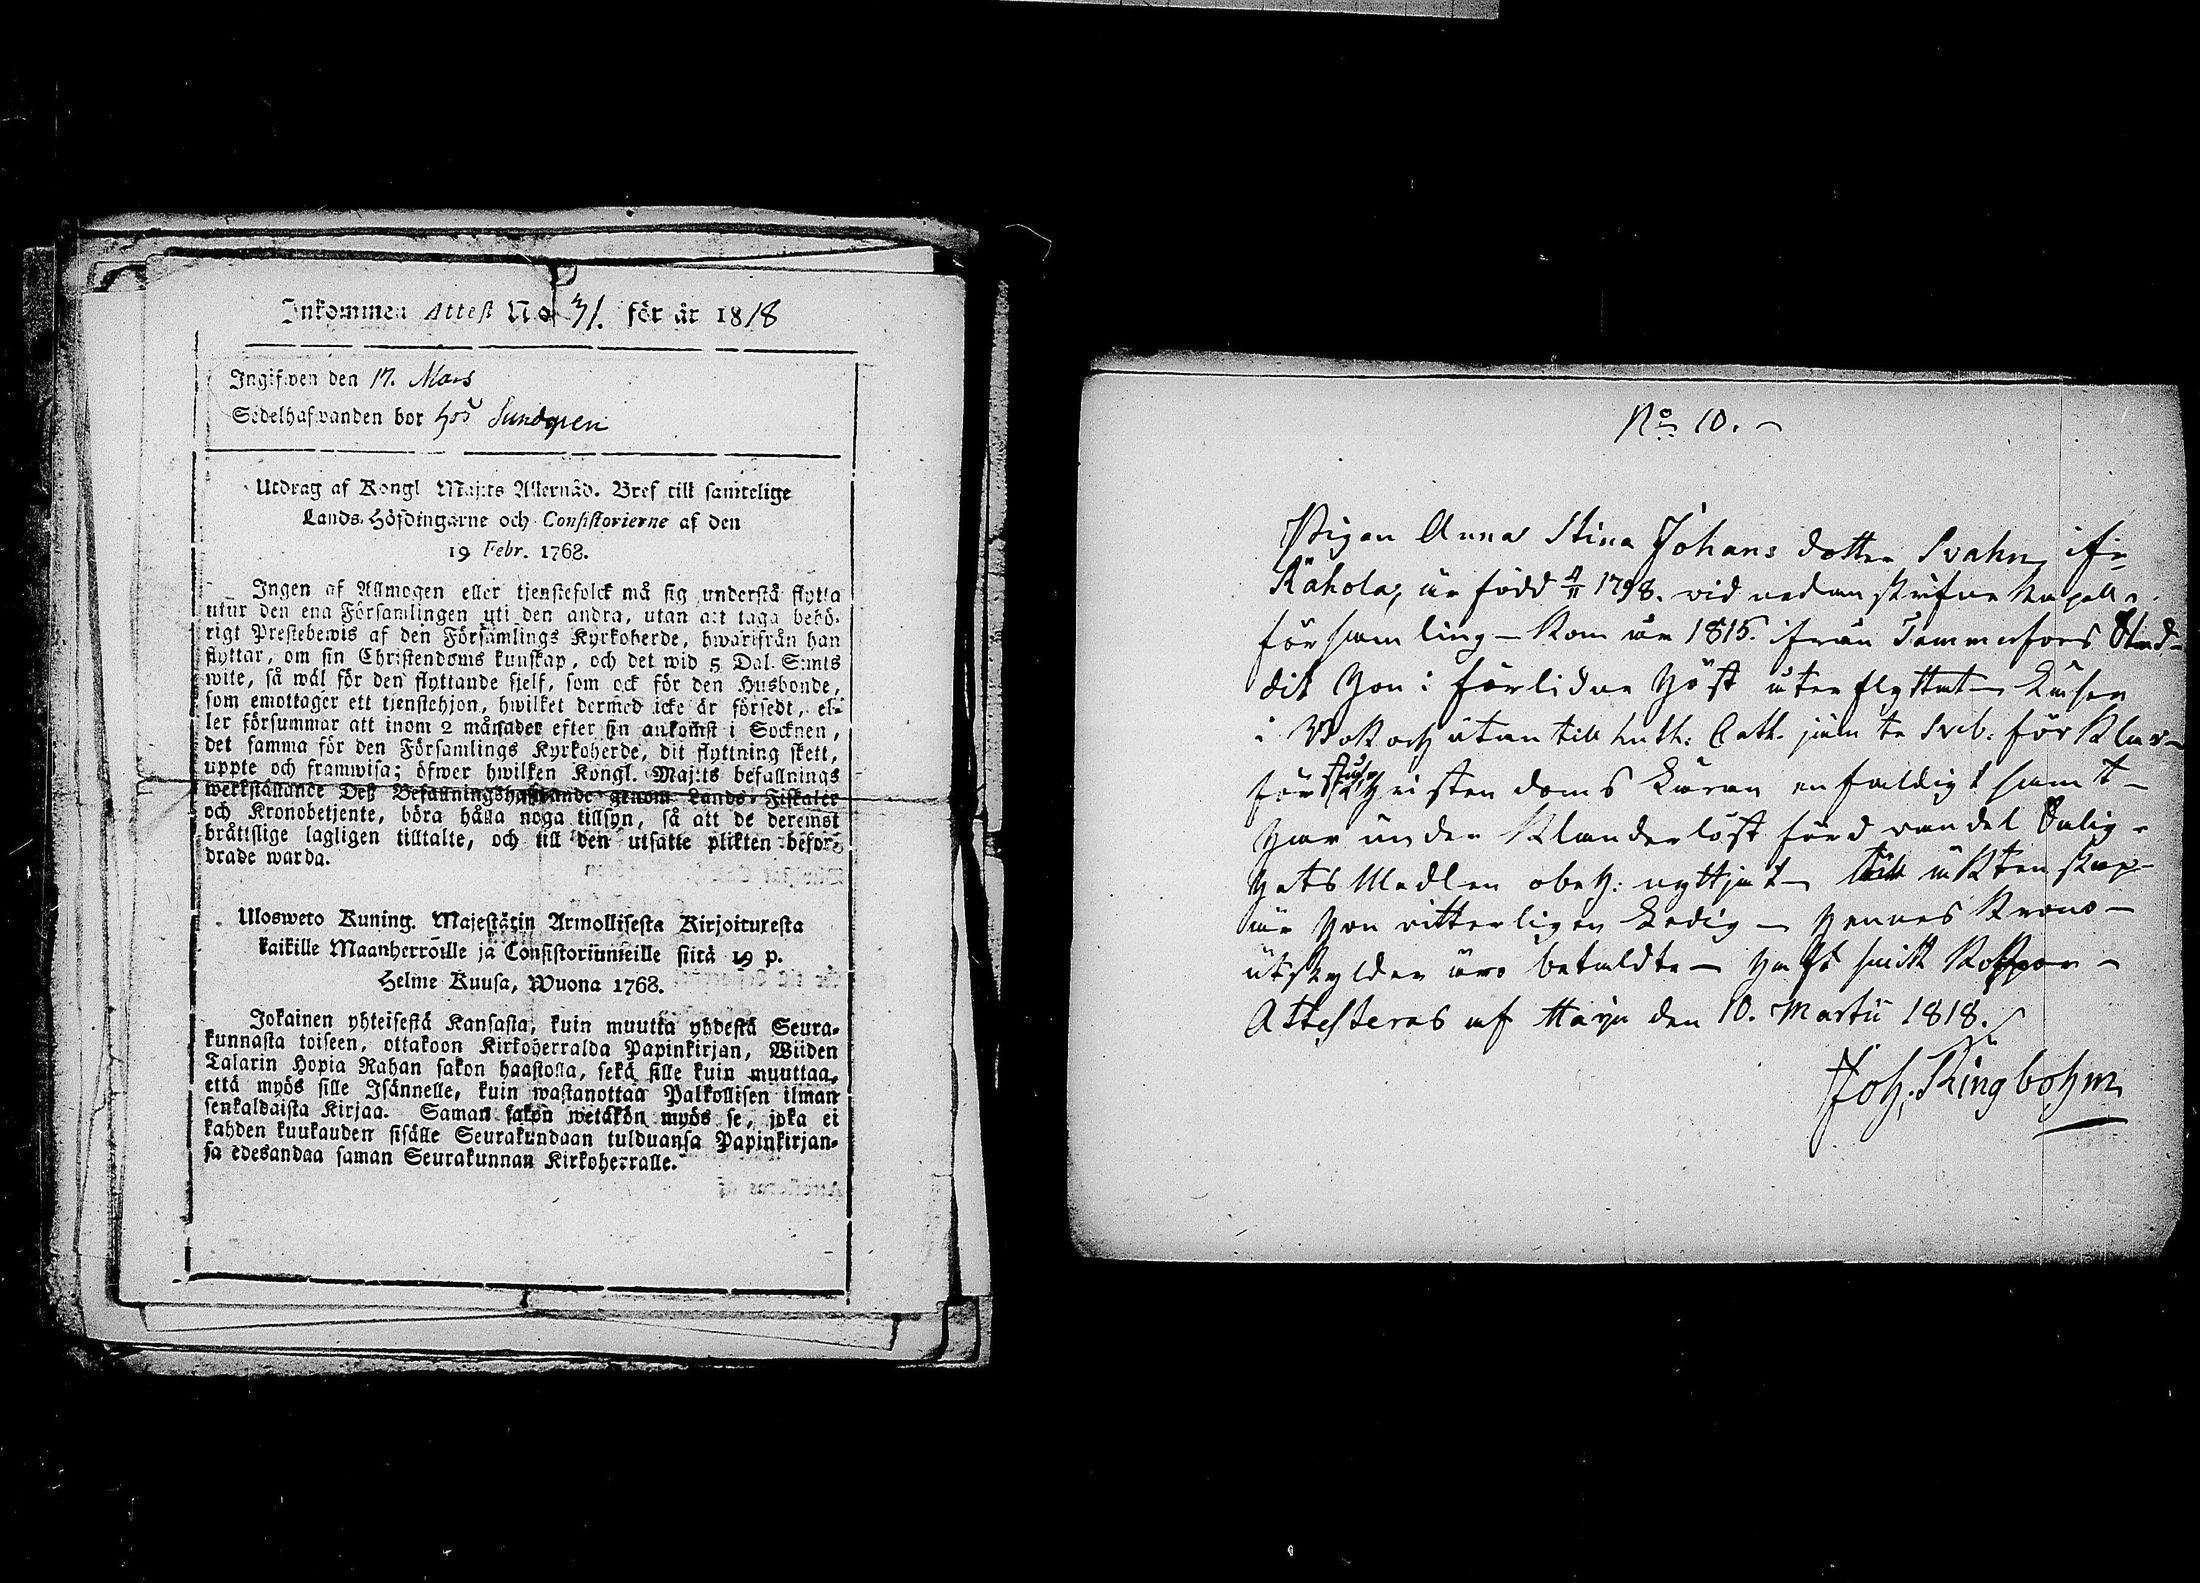 Inkommen Attest No 31. för år 1818
Ingifwen den 17. Mars
Sedelhafwanden bor hos Sundgren
Utdrag af Kongl Maj:ts Allernåd. Bref till samtelige
Lands-Höfdingarne och Consistorierne af den
19 Febr. 1768.
Ingen af Allmogen eller tjenstefolck må sig understå flytta
utur den ena Församlingen uti den andra, utan att taga behö-
rigt Prestebewis af den Församlings Kyrkoherde, hwarifrån han
flyttar, om sin Christendoms kunskap, och det wid 5 Dal. S:mts
wite, så wäl för den flyttande sjelf, som ock för den Husbonde,
som emottager ett tjenstehjon, hwilket dermed icke är försedt, el-
ler försummar att inom 2 månader efter sin ankomst i Socknen,
det samma för den Församlings Kyrkoherde, dit flyttning skett,
uppte och framwisa; öfwer hwilken Kongl. Maj:ts befallnings
werkställande Deß Befallningshafwande genom Lands-Fiskaler
och Kronobetjente, böra hålla noga tillsyn, så att de deremot
bråttslige lagligen tilltalte, och till den utsatte plikten befor-
drade warda.
Ulosweto Kuning. Majestätin Armollisesta Kirjoituxesta
kaikille Maanherroille ja Consistoriumeille siitä 19 p.
Helme Kuusa, Wuona 1768.
Jokainen yhteisestä Kansasta, kuin muutta yhdestä Seura-
kunnasta toiseen, ottakoon Kirkoherralda Papinkirjan, Wiiden
Talarin Hopia Rahan sakon haastolla, sekä sille kuin muuttaa,
että myös sille Isännelle, kuin wastanottaa Palkollisen ilman
senkaldaista Kirjaa. Saman sakon wetäkön myös se, joka ei
kahden kuukauden sisälle Seurakundaan tulduansa Papinkirjan-
sa edesandaa saman Seurakunnan Kirkoherralle.
No 10.
Pigan Anna Stina Johans dotter Svahn, ifr
Rahola, är född 4/11 1798. vid nedanskrifne kapell
församling - kom år 1815. ifrån Tammerfors Stad
dit hon i förlidne höst åter flyttat - Läser
i Bok och utan till Luth: Cath. jämte Sveb: förklar
förstår Christendoms Läran enfaldigt samt -
har under klanderlöst förd vandel Salig-
hets Medlen obeh: nyttjat - till äktenskap
är hon vitterligen Ledig - hennes krono-
utskylder äro betaldte - haft smitt koppor -
Attesteras af Harju den 10. Martii 1818.
Joh: Ringbohm